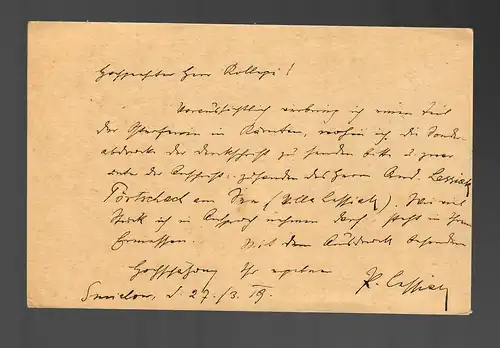 Hochgeehrter Herr Kollege!
Voraussichtlich verbring ich einen Teil
der Osterferien in Kärnten, wohin ich die Sonder-
abdrucke der Denkschrift zu senden bitte u. zwar
unter der Aufschrift: zu Handen des Herrn And. Lessiak
Pörtschach am See (Villa Lessiak). Wie viel
Stück ich in Anspruch nehmen darf, steht in Ihrem
Ermessen. Mit dem Ausdruck besonderer
Hochschätzung Ihr ergebener
d. 27./3. 19. P. Lessiak